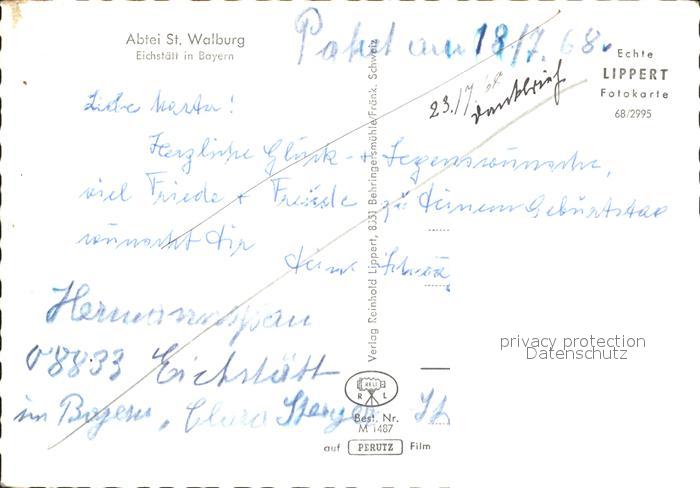 Abtei St. Walburg
Eichstätt in Bayern
Paket am 18/7. 68.
23./7. 68
Dankbrief
Echte
LIPPERT
Fotokarte
68/2995
Liebe
Herzliche Glück- + Segenswünsche,
viel Friede + Freude zu deinem Geburtstag
wünscht dir
deine
Verlag Reinhold Lippert, 8551 Behringersmühle/Fränk. Schweiz
08833 Eichstätt
in Bayern, Clara
privacy protection
Datenschutz
R L
Best. Nr.
M 1487
auf PERUTZ Film